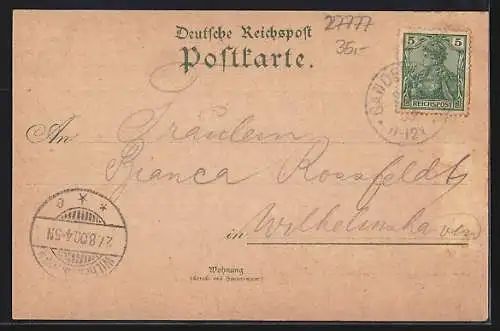 Deutsche Reichspost
Postkarte.
27777
35,-
5 5
REICHSPOST
An Fräulein
Bianca Rossfeldt
in Wilhelmshaven
Wohnung
(Straße und Hausnummer)